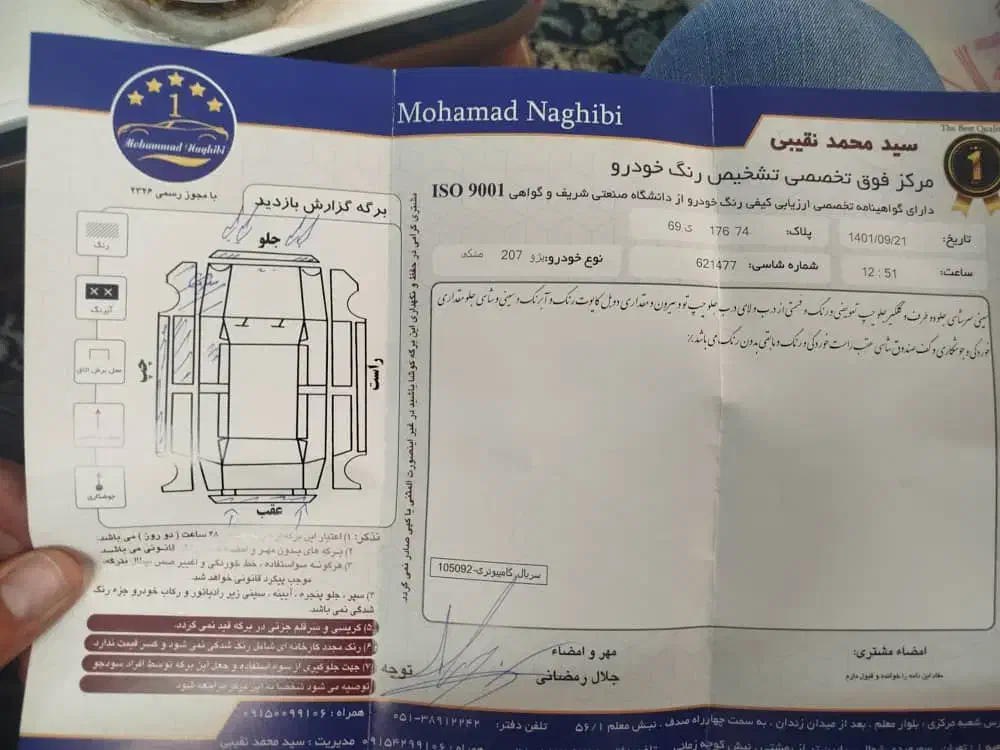 Mohamad Naghibi
The Best Quality
1
Mohammad Naghibi
سید محمد نقیبی
1
مرکز فوق تخصصی تشخیص رنگ خودرو
دارای گواهینامه تخصصی ارزیابی کیفی رنگ خودرو از دانشگاه صنعتی شریف و گواهی ISO 9001
با مجوز رسمی ۲۳۲۶
برگه گزارش بازدید
تاریخ: 1401/09/21
پلاک: 74 176 ی 69
ساعت: 12 : 51
شماره شاسی: 621477
نوع خودرو: پژو 207 مشکی
سینی سرشاسی جلو دو طرف و گلگیر جلو چپ تعویضی و رنگ و قسمتی از درب و لای درب جلو چپ تو و بیرون و مقداری دوبل کاپوت رنگ و آبرنگ و سینی و شاسی جلو مقداری
خوردگی و جوشکاری و کف صندوق شاسی عقب راست خوردگی و رنگ و مابقی بدون رنگ می باشد٪
جلو
رنگ
آبرنگ
محل برش اتاق
جوشکاری
چپ
راست
عقب
مشتری گرامی در حفظ و نگهداری این برگه کوشا باشید در غیر اینصورت المثنی یا کپی صادر نمی گردد.
تذکر: ۱) اعتبار این برگه ۴۸ ساعت ( دو روز ) می باشد.
۲) برگه های بدون مهر و امضاء قانونی می باشد.
۳) هرگونه سواستفاده ، خط خوردگی و تغییر
موجب پیگرد قانونی خواهد شد.
سپر ، جلو پنجره ، آیینه ، سینی زیر رادیاتور و رکاب خودرو جزء رنگ
شدگی نمی باشد.
۵) گریسی و سرقلم جزئی در برگه قید نمی گردد.
۶) رنگ مجدد کارخانه ای شامل رنگ شدگی نمی شود و کسر قیمت ندارد.
۷) جهت جلوگیری از سوء استفاده و جعل این برگه توسط افراد سودجو
توصیه می شود شخصا به این مرکز مراجعه شود
توجه
سریال کامپیوتری: 105092
مهر و امضاء
جلال رمضانی
امضاء مشتری:
مفاد این نامه را خوانده و قبول دارم
آدرس شعبه مرکزی ، بلوار معلم . بعد از میدان زندان . به سمت چهارراه صدف . نبش معلم ۵۶/۱
تلفن دفتر: ۰۵۱-۳۸۹۱۲۲۴۲
همراه : ۰۹۱۵۰۰۹۹۱۰۶
همراه: ۰۹۱۵۴۲۹۹۱۰۶ مدیریت : سید محمد نقیبی